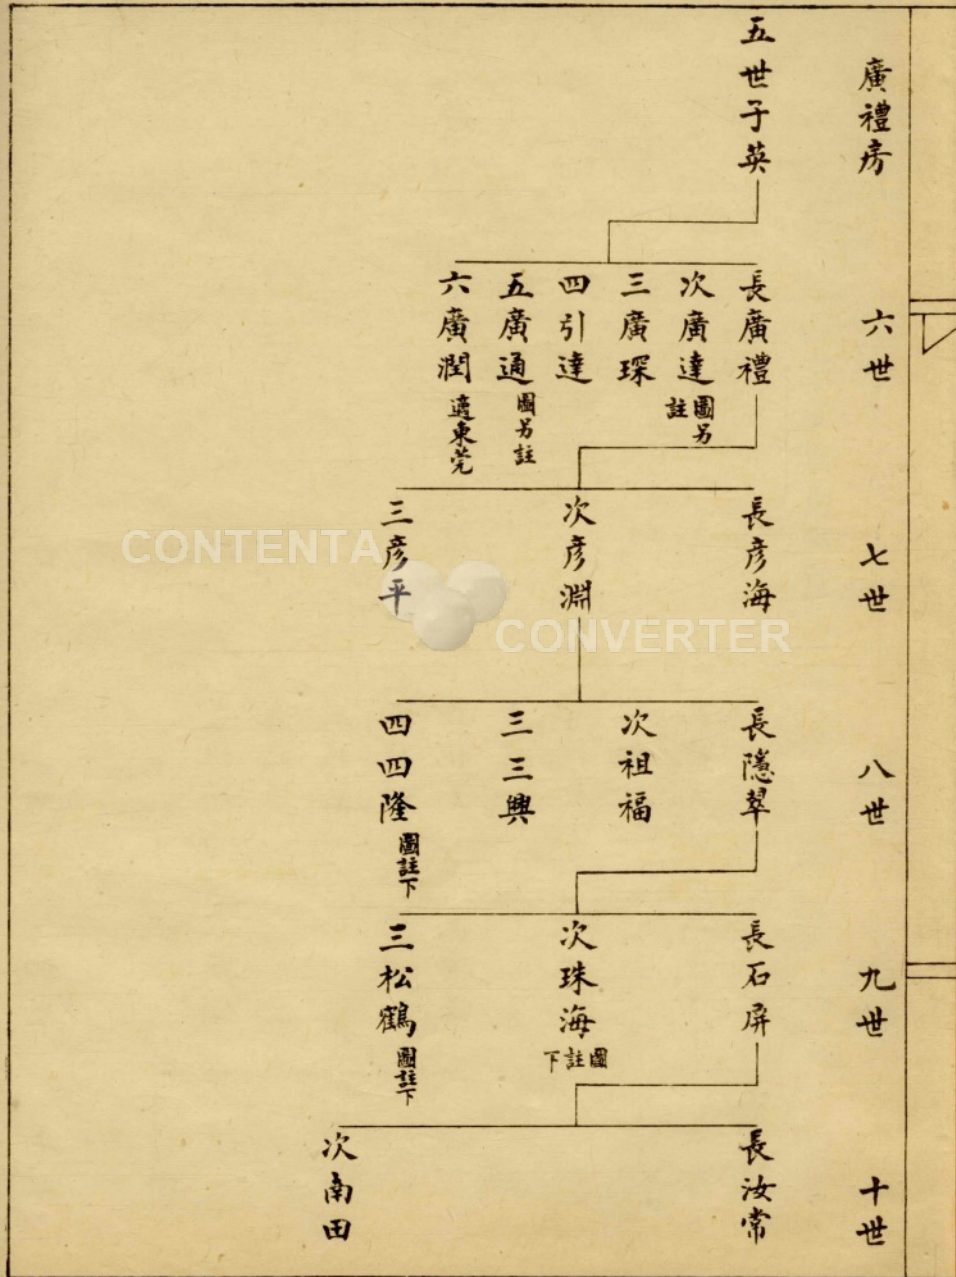 廣禮房
五世子英
六世
長廣禮
次廣達
圖另
註
三廣琛
四引達
五廣通
圖另註
六廣潤
適東莞
七世
長彥海
次彥淵
三彥平
八世
長隱翠
次祖福
三三興
四四隆
圖註下
九世
長石屏
次珠海
圖註下
三松鶴
圖註下
十世
長汝常
次南田
CONTENTA
CONVERTER